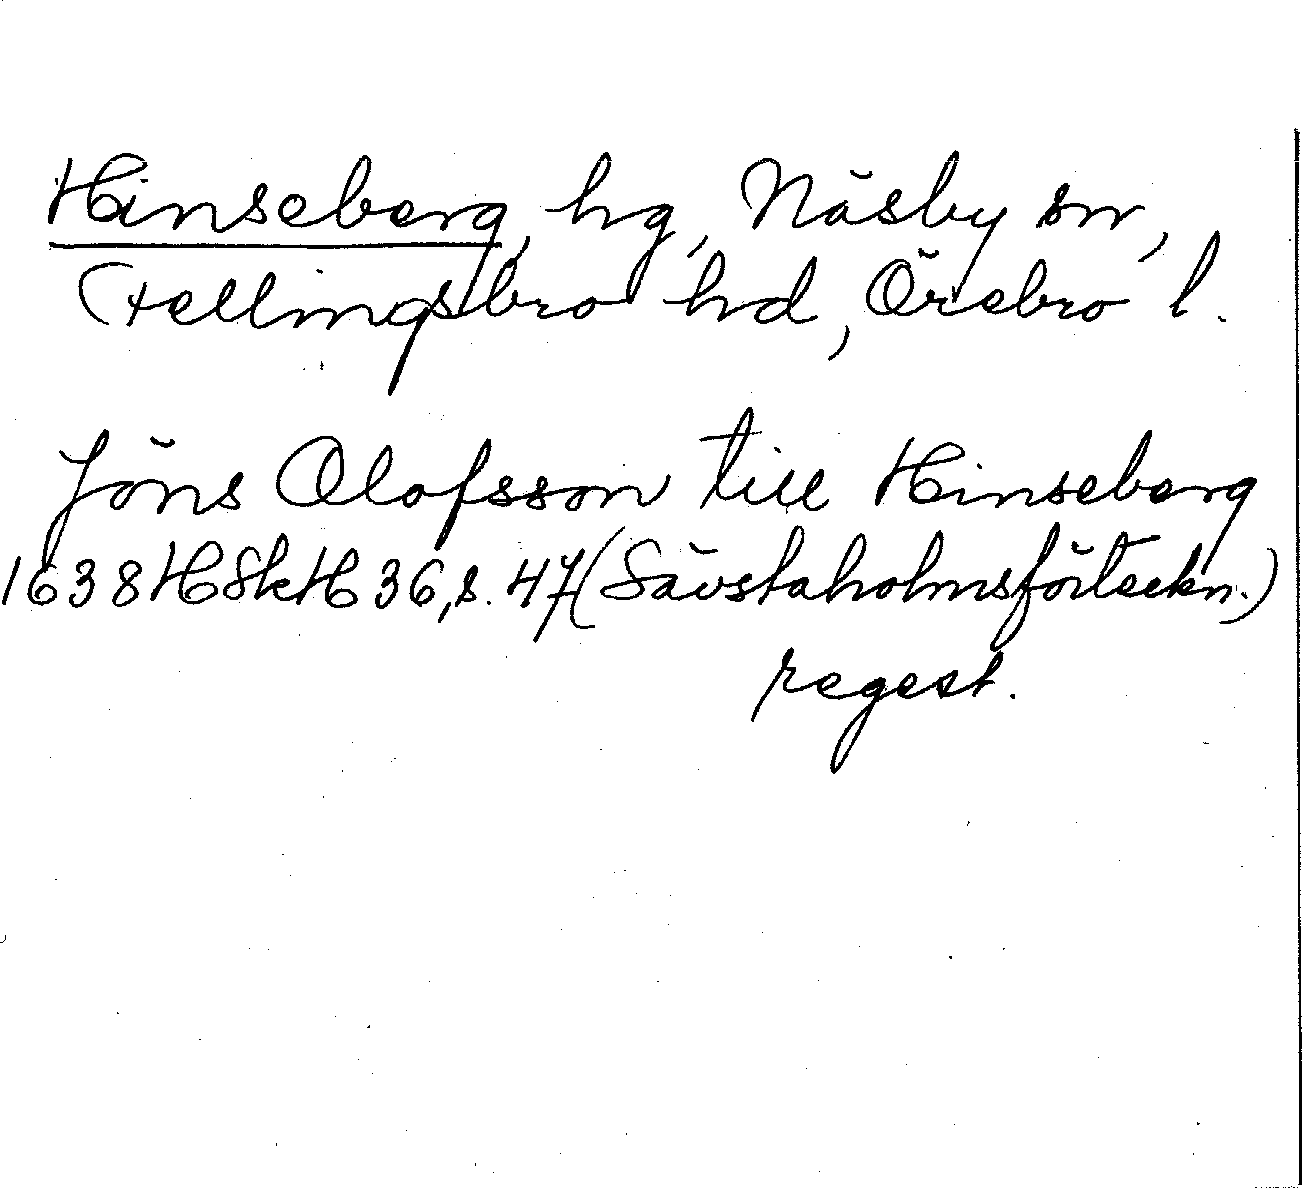 Hinseberg, hg, Näsby sn,
Fellingsbro hd, Örebro l.
Jöns Olofsson till Hinseberg
1638 HSkH 36, s. 47 (Sävstaholmsförteckn.)
regest.